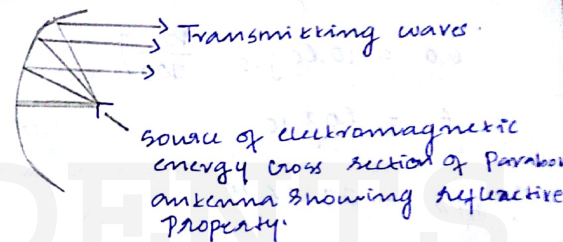 Transmitting waves.
Source of electromagnetic
energy cross section of Parabol
antenna showing reflective
Property.